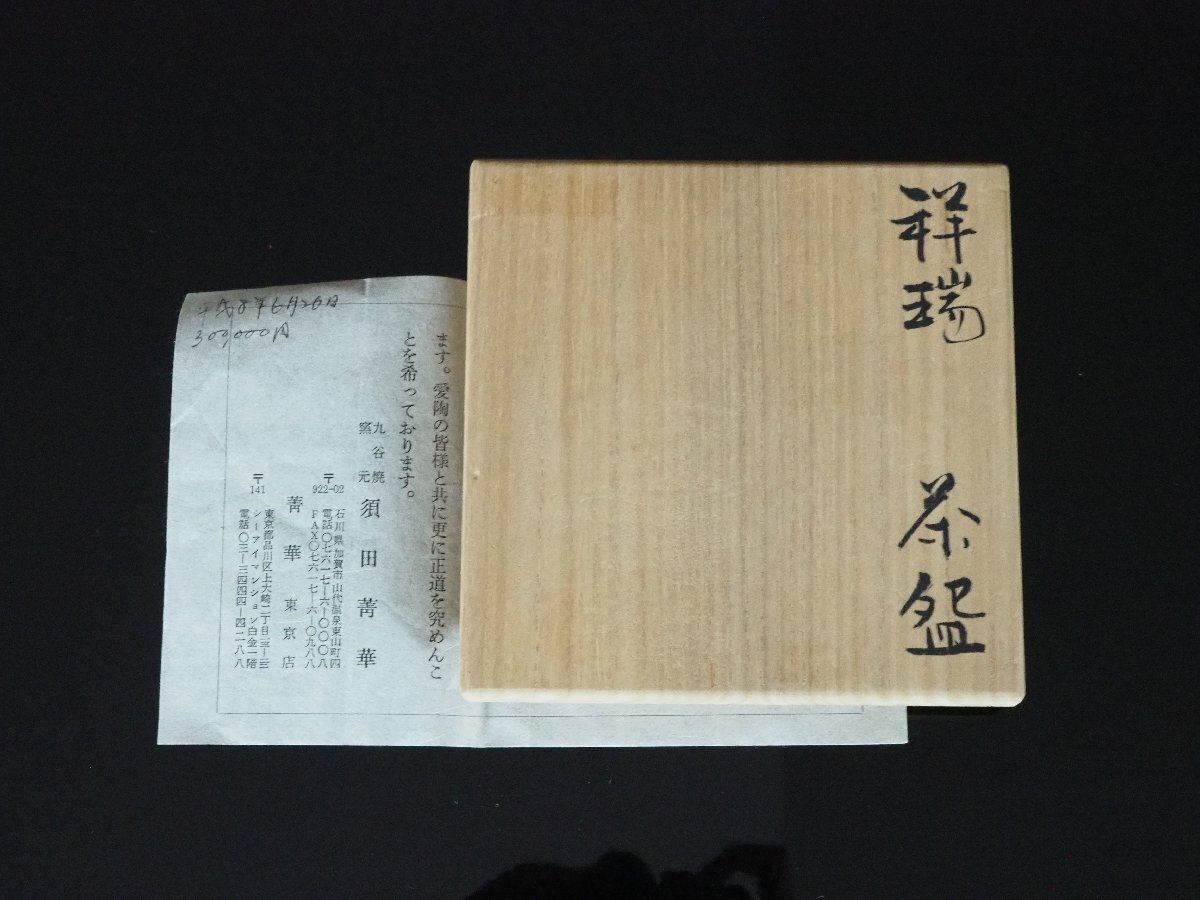 祥瑞　茶盌
平成8年6月26日
300,000円
ます。愛陶の皆様と共に更に正道を究めんこ
とを希っております。
九谷焼
窯元
須田菁華
〒922-02
石川県加賀市山代温泉東山町四
電話〇七六一七―六―〇〇〇八
FAX〇七六一七―六―〇九八八
菁華　東京店
〒141
東京都品川区上大崎二丁目
シーアイマンション白金一階
電話〇三―三四四四―四二八八